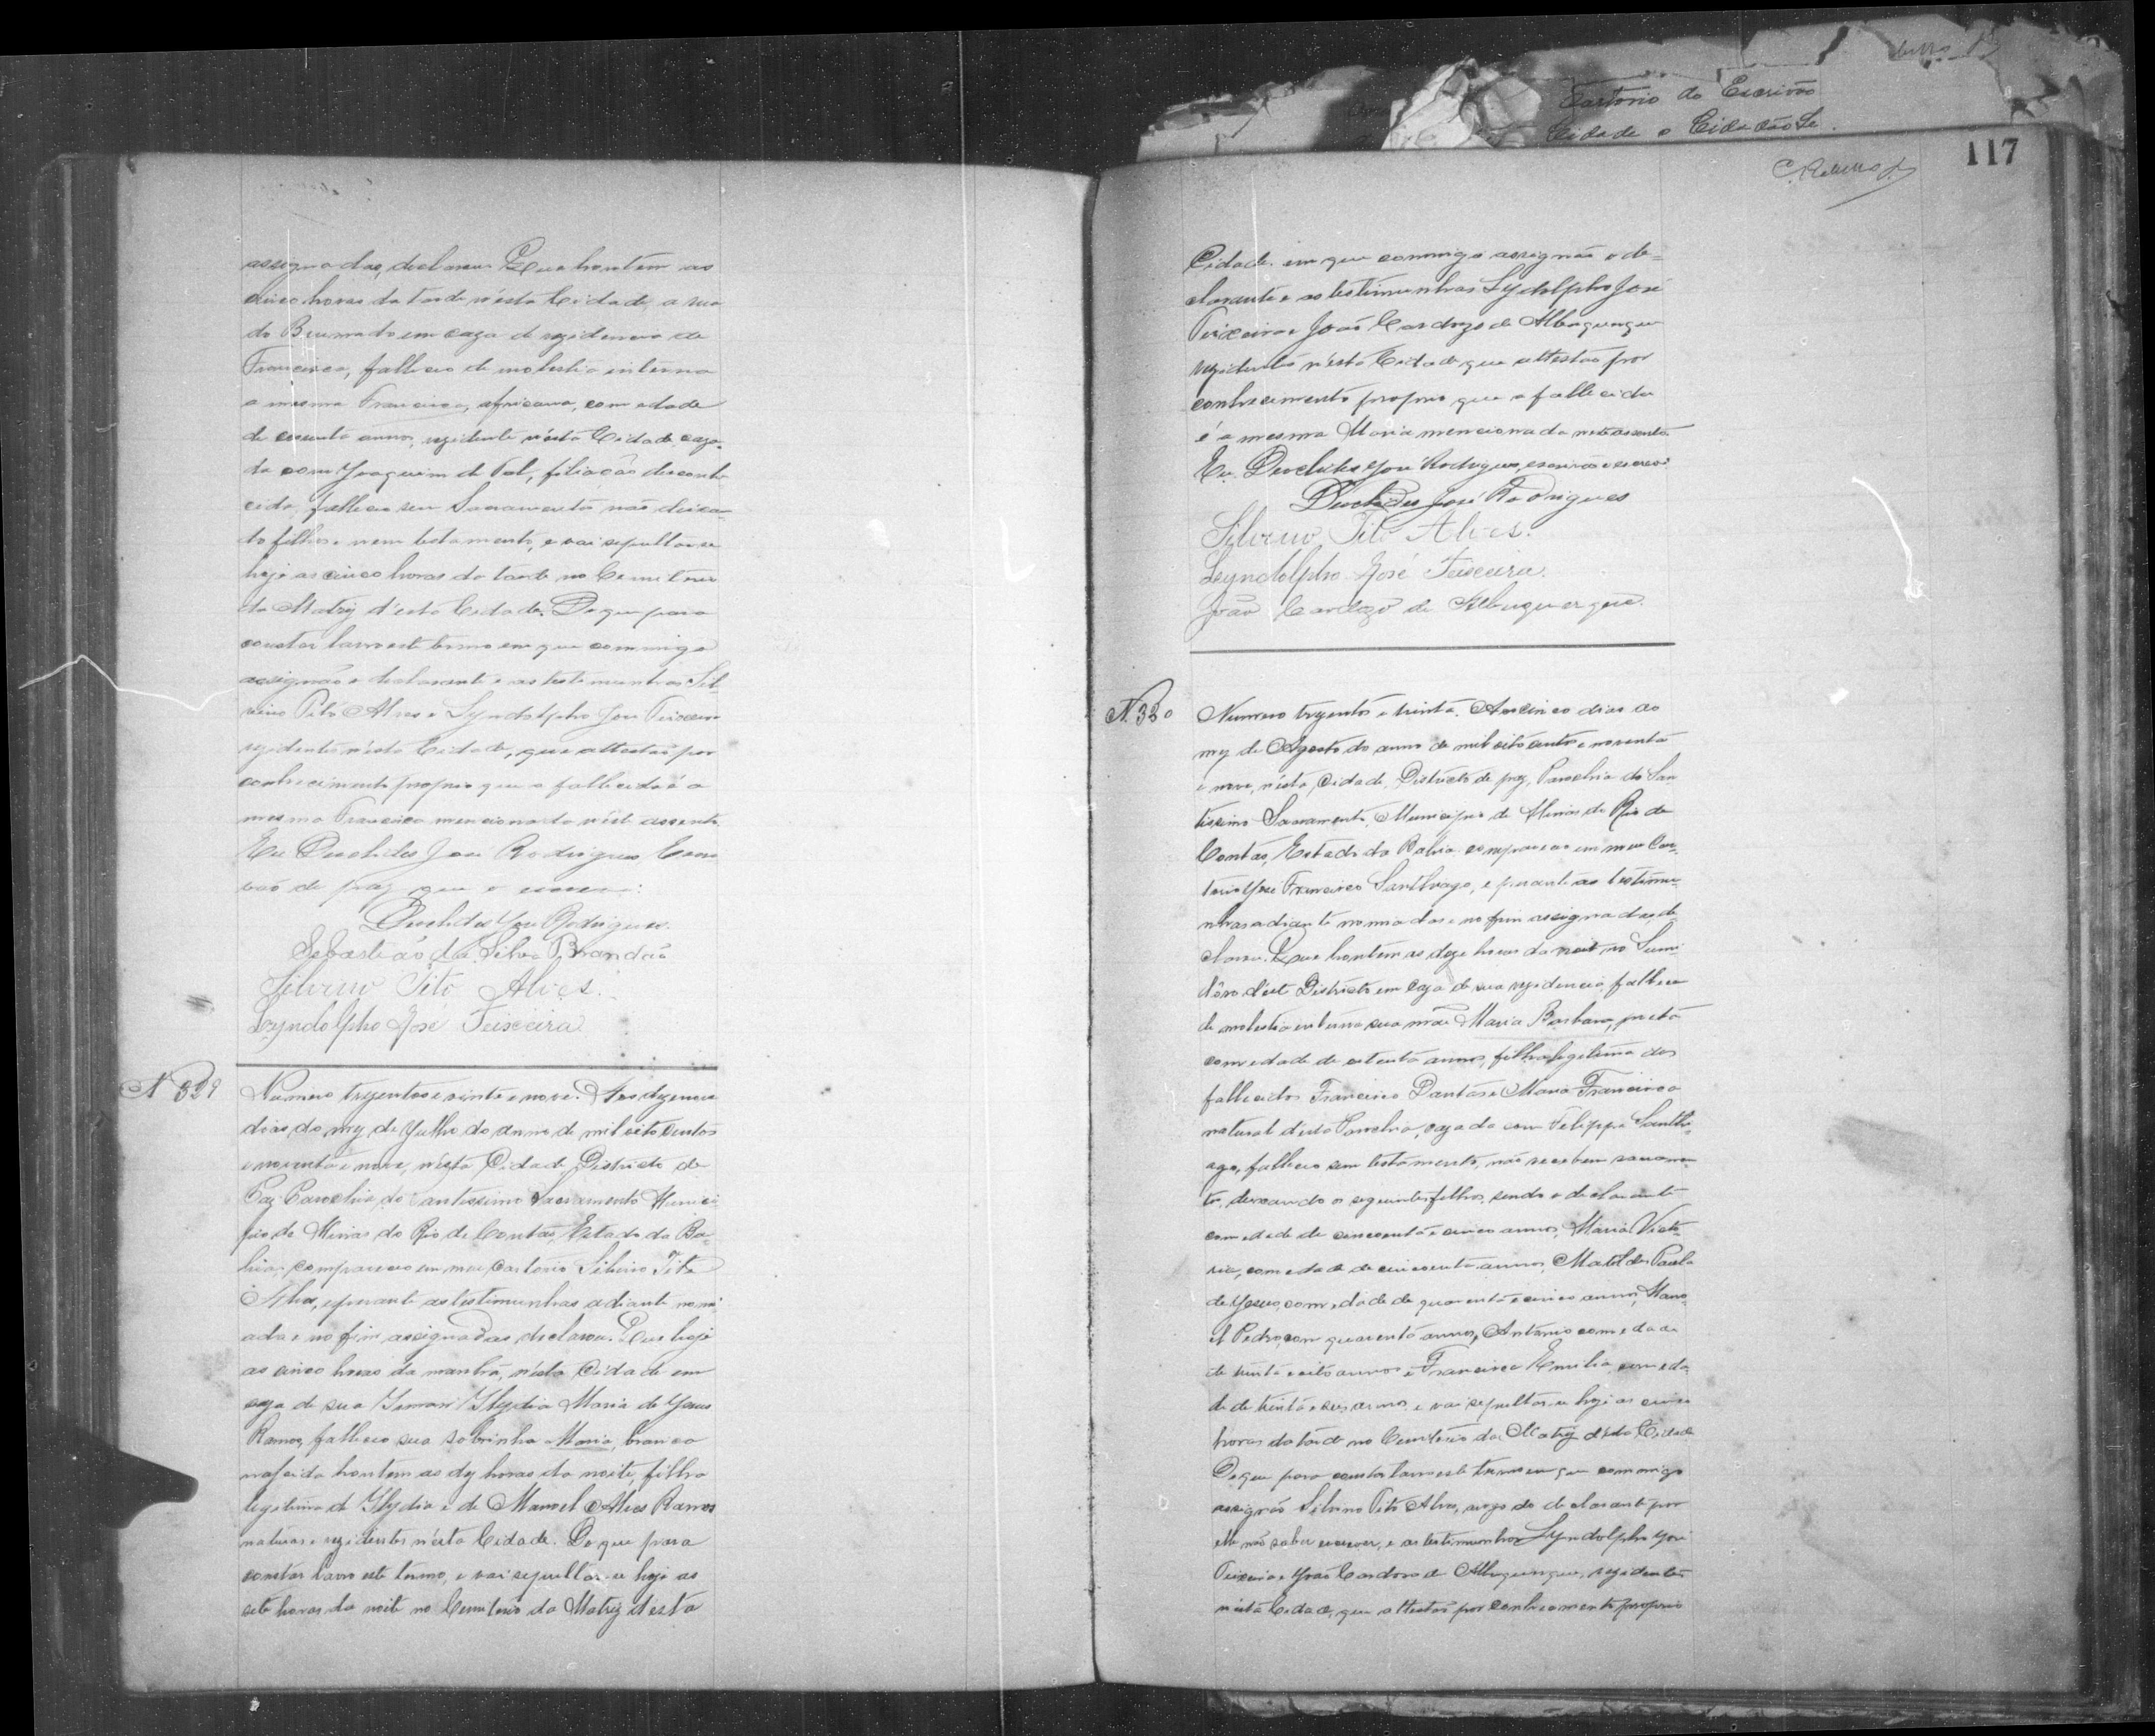 assignadas, declarou Que hontem as
cinco horas da tarde n'esta Cidade, a rua
do Brumado em caza de rezidencia de
Francisca, falleceo de molestia interna
a mesma Francisca, africana, com edade
de cessenta annos, rezidente n'esta Cidade, caza-
da com Joaquim de Tal, filiação desconhe
cida, falleceo sem Sacramento não deixan-
do filhos e nem testamento, e vai sepultar-se
hoje as cinco horas da tarde no Cemiterio
da Matriz d'esta Cidade. Do que para
constar lavro este termo em que commigo
assignão o declarante e as testemunhas Sil-
vino Tito Alves e Lyndolpho José Teixeira
rezidentes n'esta Cidade, que attestão por
conhecimento proprio que a fallecida é a
mesma Francisca mencionada n'este assento.
Eu Deoclides José Rodrigues Escri
vão de paz que o escrevi:
Deoclides José Rodrigues.
Sebastião da Silva Brandão
Silvino Tito Alves.
Lyndolpho José Teixeira
N 329
Numero trezentos e vinte e nove. Aos dezenove
dias do mez de Julho do anno de mil oito centos
e noventa e nove, n'esta Cidade Districto de
Paz Parochia do Santissimo Sacramento Munici
pio de Minas do Rio de Contas, Estado da Ba-
hia, compareceo em meu Cartorio Silvino Tito
Alves, e perante as testemunhas adiante nomi
adas e no fim assignadas, declarou. Que hoje
as cinco horas da manhã, n'esta Cidade em
caza de sua Irman Ilydia Maria de Jesus
Ramos, falleceo sua sobrinha Maria, branca
nascida hontem as dez horas da noite, filha
legitima de Ilydia e de Manoel Alves Ramos
naturaes e rezidentes n'esta Cidade. Do que para
constar lavro este termo, e vai sepultar-se hoje as
sete horas da noite no Cemiterio da Matriz d'esta
Cartorio do Escrivão
Cidade o Cidadão
117
Cidade. em que commigo assignão o de=
clarante e as testemunhas Lydolpho José
Teixeira e João Cardozo de Albuquerque
rezidentes n'esta Cidade que attestão por
conhecimento proprio que a fallecida
é a mesma Maria mencionada neste assento.
Eu Deoclides José Rodrigues, escrivão o escrevi
Deoclides José Rodrigues
Silvino Tito Alves.
Leyndolpho José Teixeira.
João Cardozo de Albuquerque.
N. 330
Numero trezentos e trinta. Aos cinco dias do
mez de Agosto do anno de mil oito centos e noventa
e nove, n'esta Cidade, Districto de paz, Parochia do San
tissimo Sacramento, Municipio de Minas do Rio de
Contas, Estado da Bahia compareceo em meu Car-
torio José Francisco Santhiago, e perante as testimu-
nhas adiante nomiadas e no fim assignadas, de-
clarou. Que hontem as doze horas da noite, no
d'este Districto em caza de sua rezidencia, falleceu
de molestia interna sua mãe Maria Barbara, preta
com edade de oitenta annos, filha legitima dos
fallecidos Francisco Dantas e Maria Francisca
natural d'esta Parochia, cazada com Felippe Santhi-
ago, falleceo sem testamento, não recebeu sacramen-
to, deixando os seguintes filhos, sendo o declarante
com edade de cincoenta e cinco annos, Maria Victo-
ria, com edade de cincoenta annos, Matildes Paula
de Jesus, com edade de quarenta e cinco annos, Mano-
el Pedro, com quarenta annos, Antonio com edade
de trinta e oito annos e Francisca Emilia, com eda-
de de trinta e seis annos, e vai sepultar-se hoje as cinco
horas da tarde no Cemiterio da Matriz d'esta Cidade
Do que para constar lavro este termo em que commigo
assignão Silvino Tito Alves, a rogo do declarante por
elle não saber escrever, e as testimunhas Lyndolpho José
Teixeira e João Cardozo de Albuquerque, rezidentes
n'esta Cidade, que attestão por conhecimento proprio